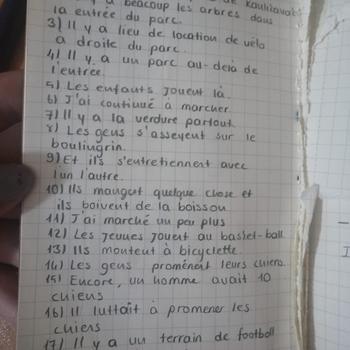 a beacoup les arbres dans
la entrée du parc.
3) Il y a lieu de location de vélo
à droite du parc.
4) Il y a un parc au-delà de
l'entrée.
5) Les enfants jouent là.
6) J'ai continué à marcher.
7) Il y a la verdure partout.
8) Les gens s'asseyent sur le
boulingrin.
9) Et ils s'entretiennent avec
l'un l'autre.
10) Ils mangut quelque chose et
ils boivent de la boissou
11) J'ai marché un peu plus
12) Les jeunes jouent au basket-ball
13) Ils monteut à bicyclette.
14) Les gens promènent leurs chiens.
15) Encore, un homme avait 10
chiens
16) Il luttait à promener les
chiens
17) Il y a un terrain de football